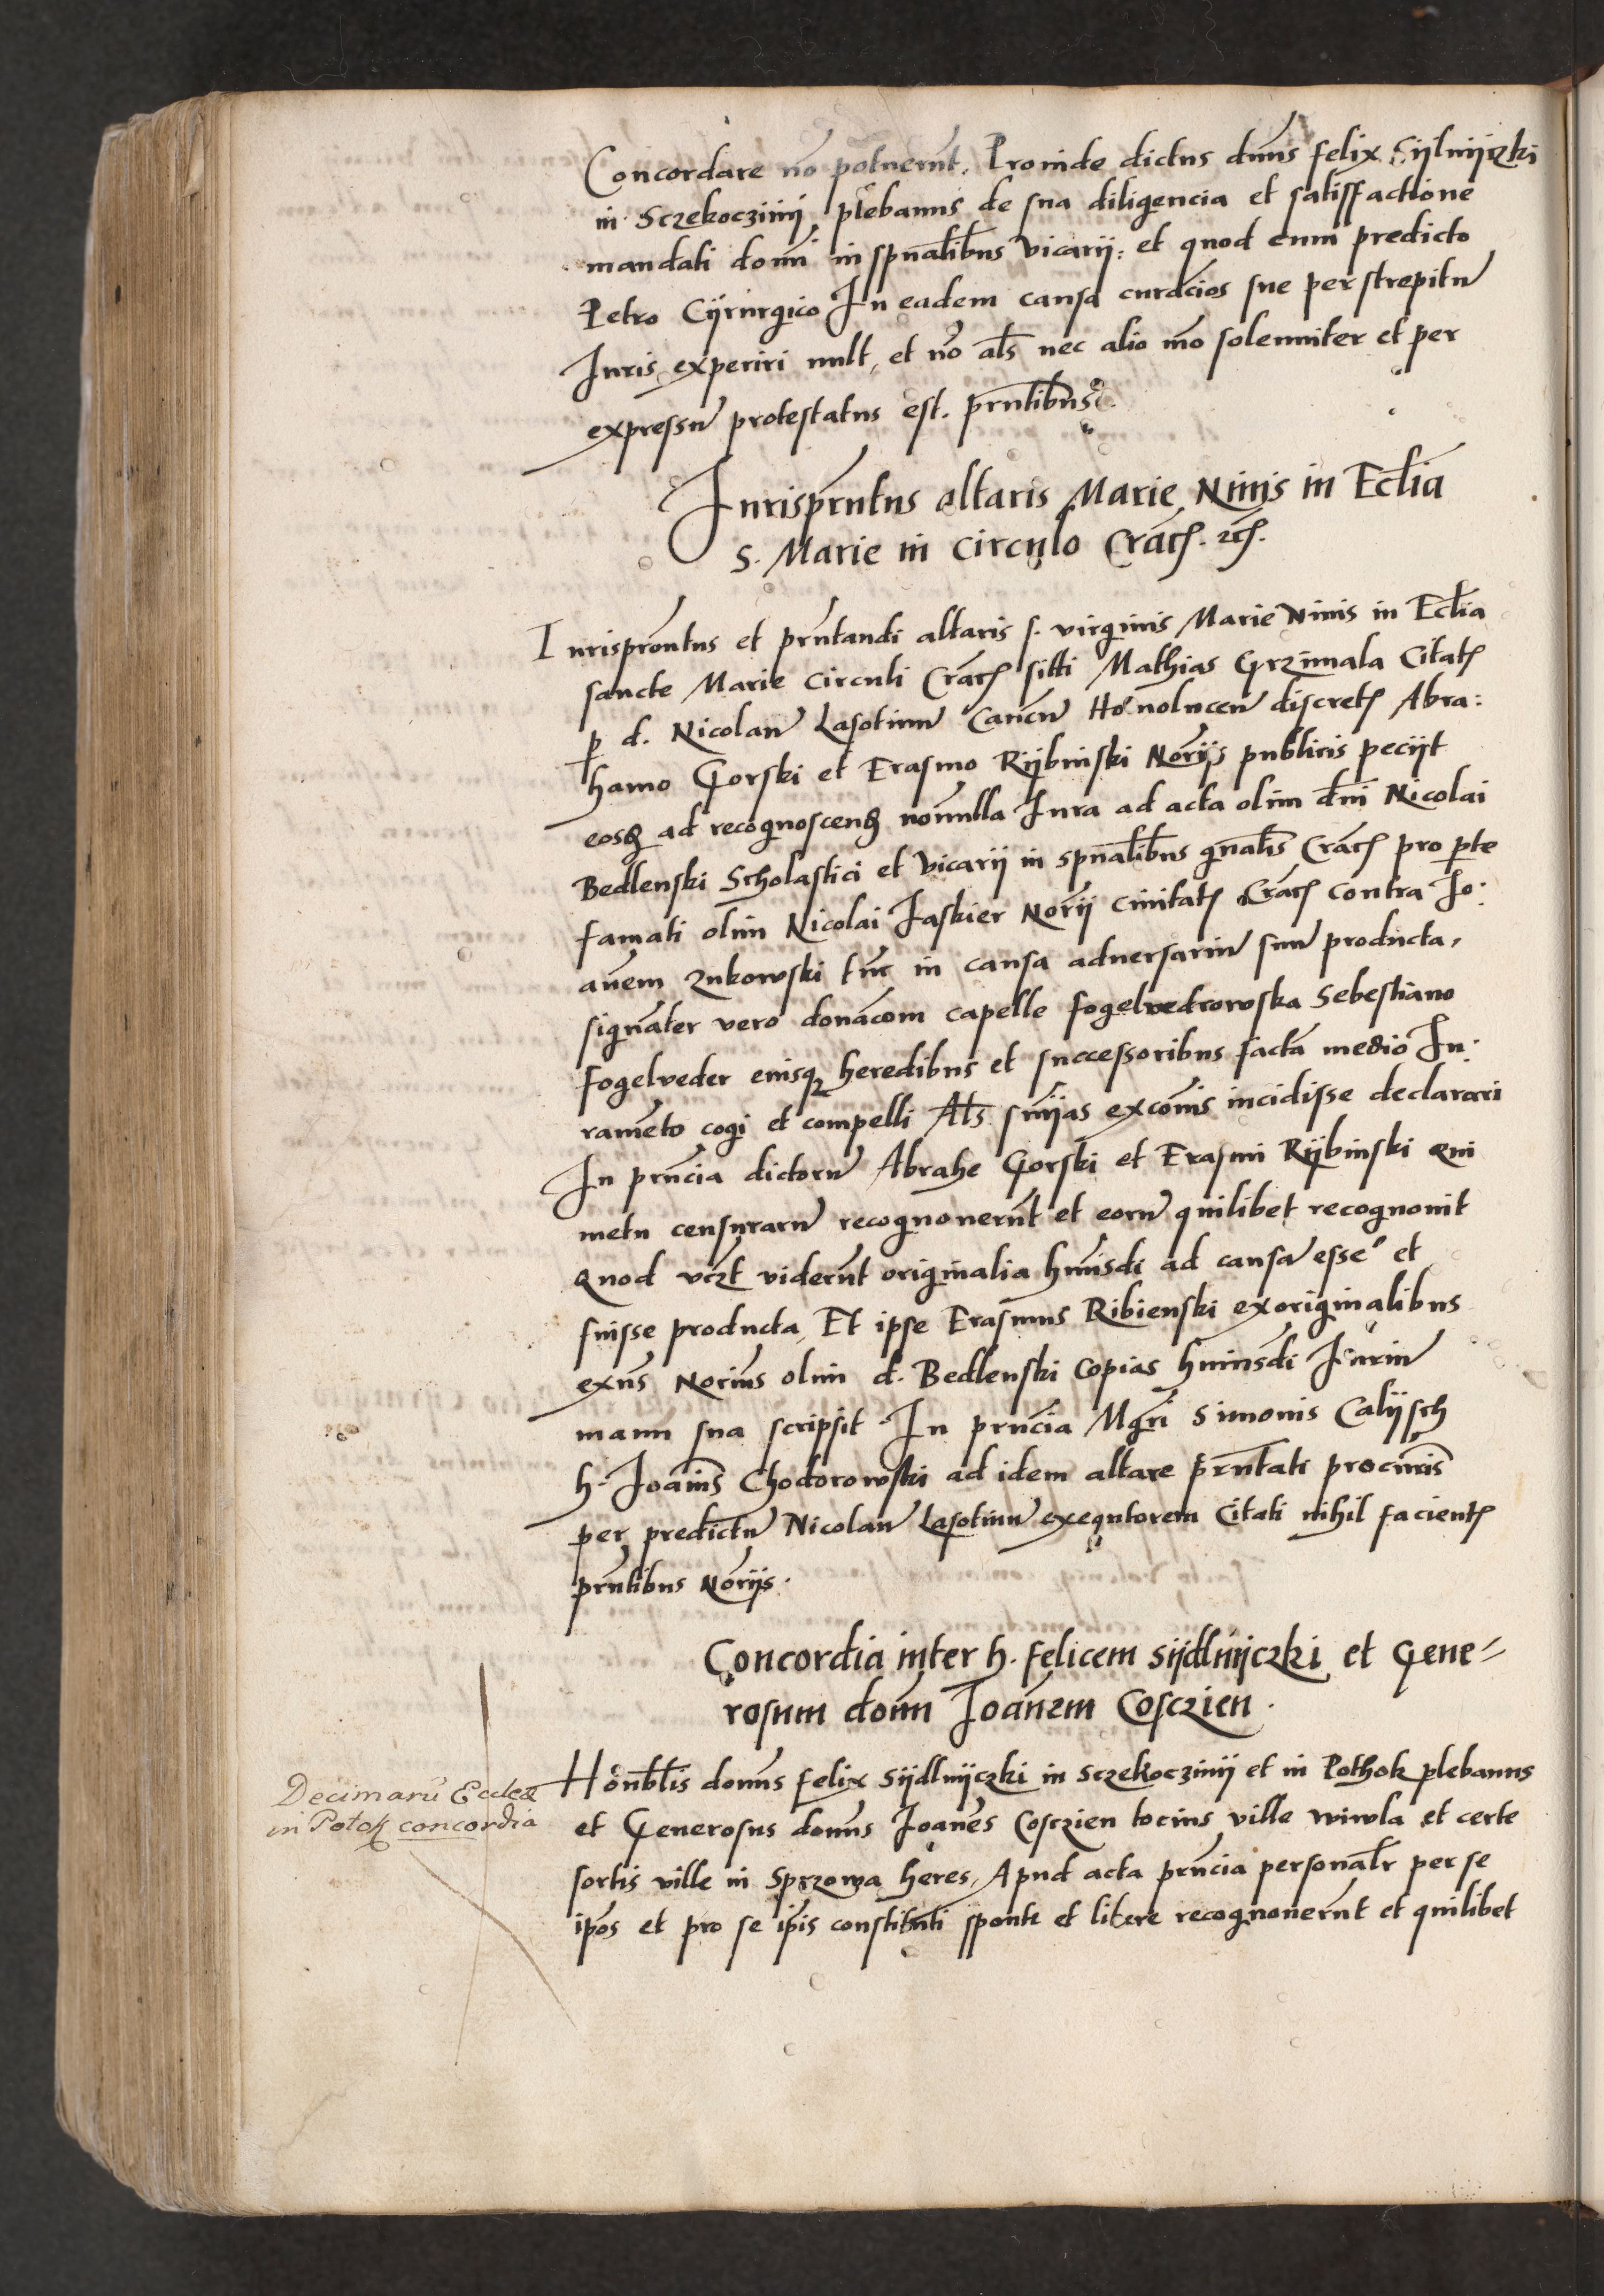 Concordare nō potuerūt. Proinde dictus dn̄us felix Sijlnijczki
in Sczekoczinij plebanus de sua diligencia et satisffactione
mandati domī in spūalibus vicarij: et quod cum predicto
Petro Cijrurgico In eadem causa curac̄ios sue per strepitū
Iuris experiri uult, et nō al̄s nec alio mō solenniter et per
expressū protestatus est. pr̄ntibus
Jurispr̄ntus altaris Marie Niuis in Ecl̄ia
S. Marie in circulo Crac̄. etc̄.
Jurispr̄ntus et pr̄ntandi altaris s. virginis Marie Niuis in Ecl̄ia
sancte Marie circuli Crac̄ sitti Mathias Grzimala Citat̄
p d. Nicolaū Lasotinū Canc̄ū discret̄ Abra:
hamo Gorski et Erasmo Rijbinski Norijs publicis pecijt
eosq ad recognoscend nōnulla Iura ad acta olim dn̄i Nicolai
Bedlenski Scholastici et vicarij in spūalibus gnāl̄is Crac̄ pro pte
famati olim Nicolai Jaskier Norij ciuitat̄ Crac̄ contra Jo:
anem Zukowski tūc in causa aduersariū suū producta,
signāter vero donac̄om capelle fogelvedrowska Sebestiano
fogelveder eiusq heredibus et successoribus factā medio Iu:
ramēto cogi et compelli Al̄s sn̄ijas excōnis incidisse declarari
In pr̄ncia dictorū Abrahe Gorski et Erasmi Rijbinski qui
metu censurarū recognouerūt et eorū quilibet recognouit
quod vczt viderūt originalia hm̄oisdi ad causā esse et
fuisse producta, Et ipse Erasmus Ribienski ex originalibus
exn̄s Norius olim d. Bedlenski copias huiusdi Iuriū
manu sua scripsit In pr̄ncia Mgr̄i Simonis Calijsch
h. Joānis Chodorowski ad idem altare pr̄ntati procuris
per predictū Nicolaū Lasotinū exequtorem Citati nihil facient̄
pr̄ntibus Norijs.
Concordia inter h. felicem Sijdlnijczki et Gene-
rosum domn Joānem Cosczien.
Honbl̄is domn̄s felix Sijdlnijczki in Sczekoczinij et in Pothok plebanus
et Generosus domn̄s Joanēs Cosczien tocius ville wiwla et certe
sortis ville in Sprzowa heres, Apud acta pr̄ncia personal̄r per se
ip̄os et pro se ip̄is constituti sponte et libere recognouerūt et quilibet
Decimarū Ecclæ
in Potok concordia